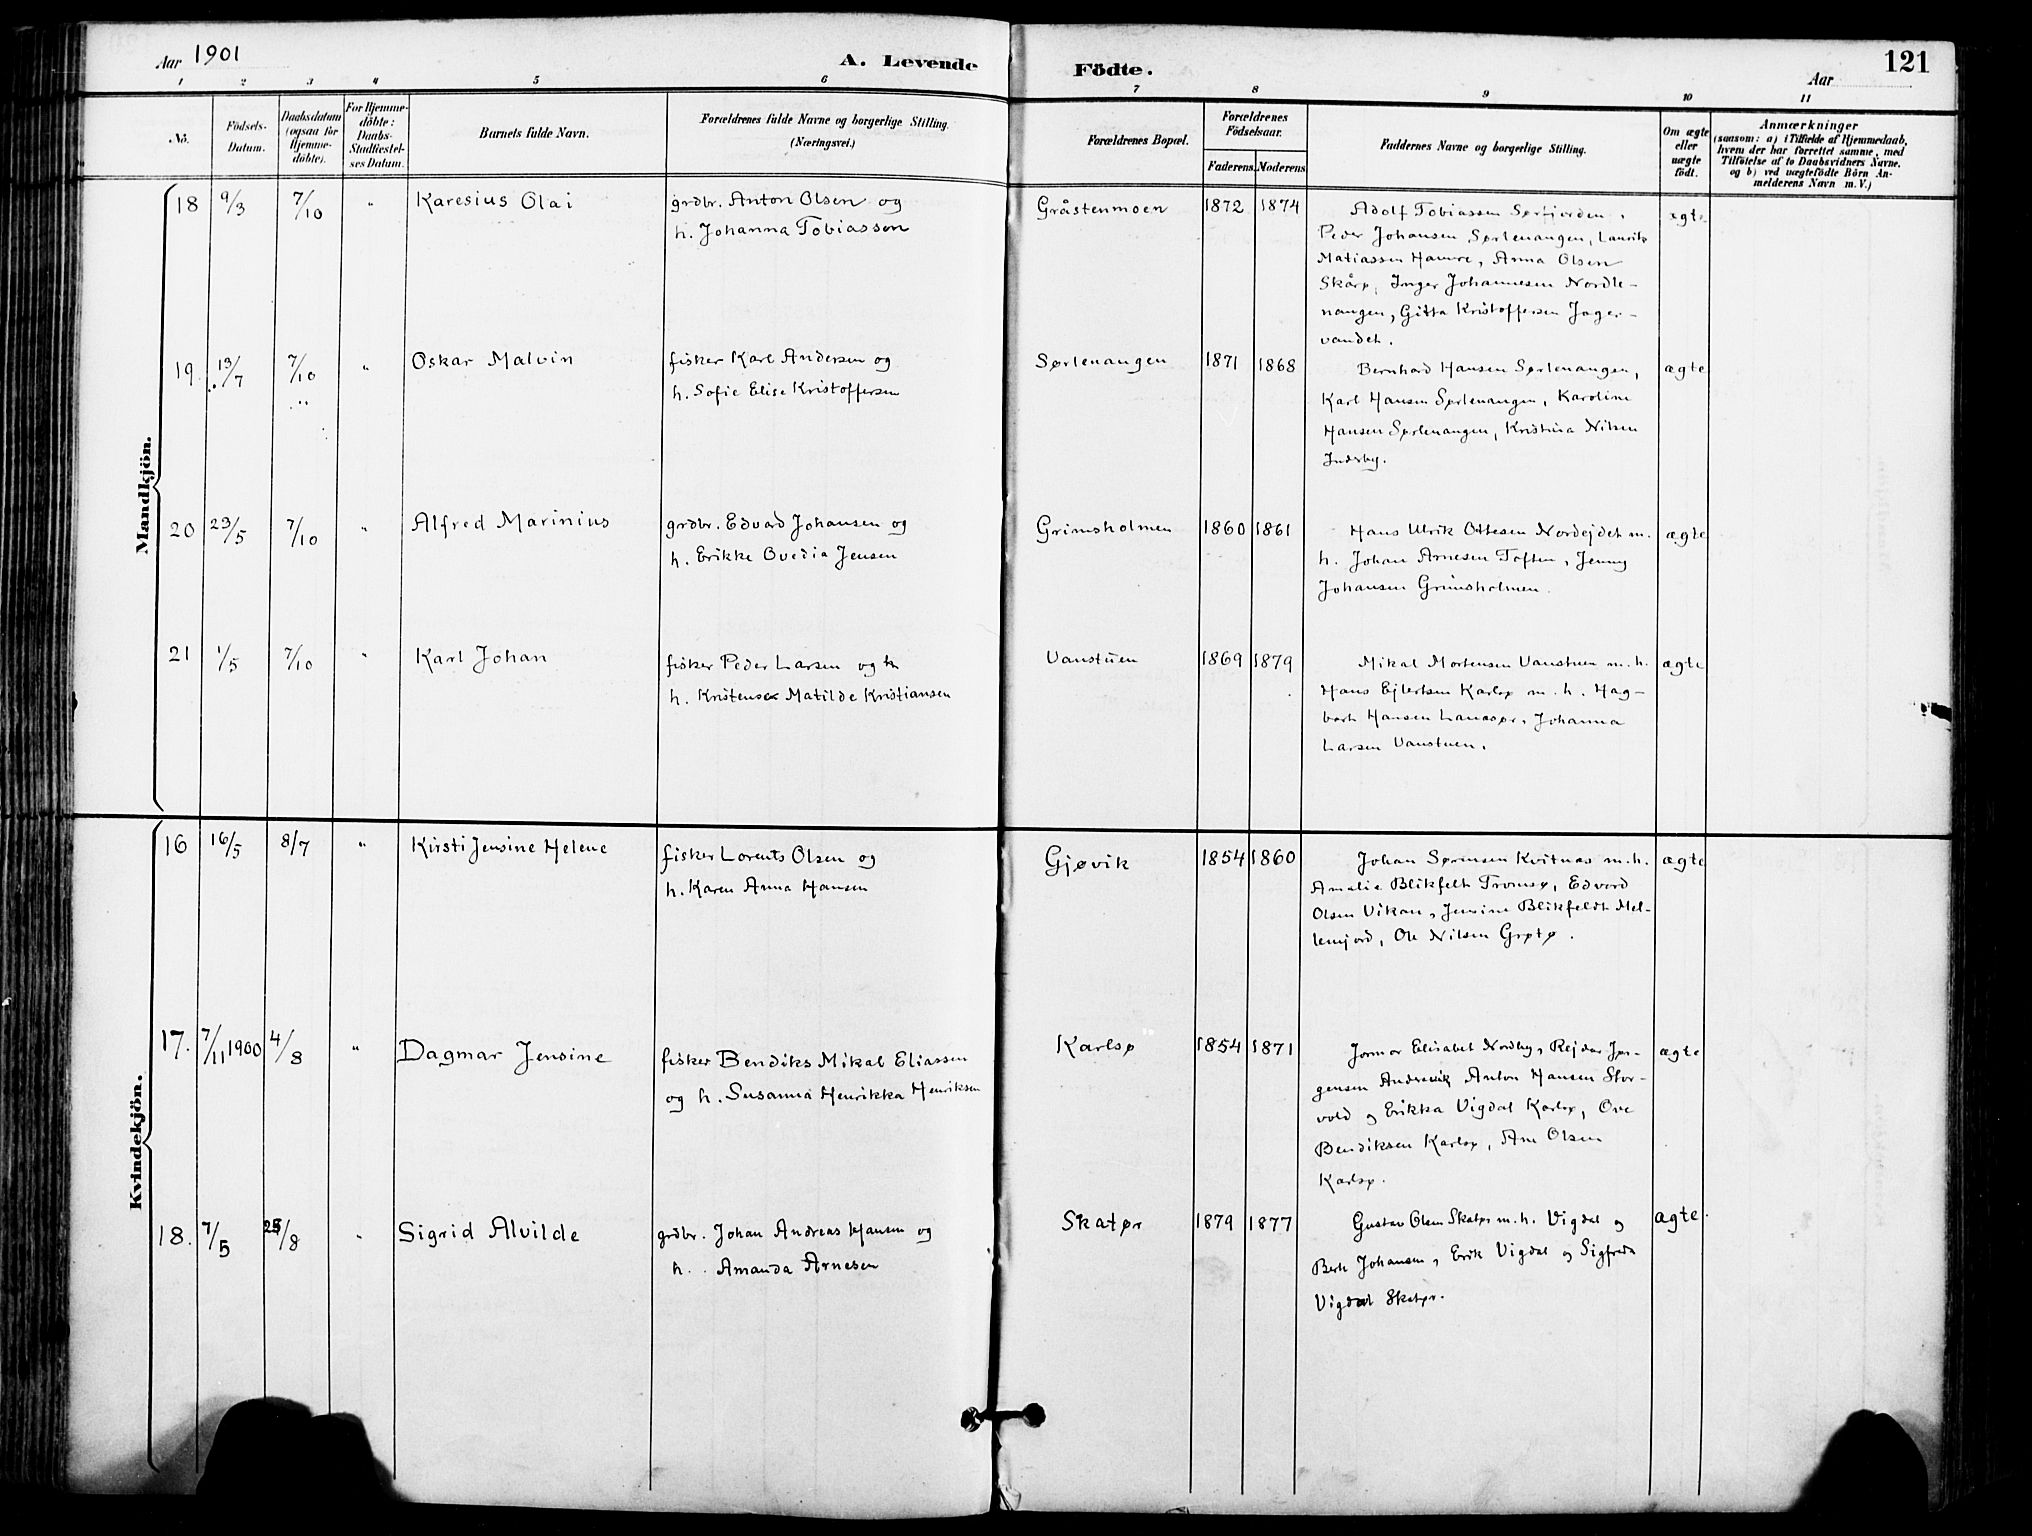 Aar 1901
A. Levende Födte.
Aar
121
1 2 3 4 5 6 7 8 9 10 11
No.
Födsels-
Datum.
Daabsdatum
(ogsaa for
Hjemme-
döbte).
For Hjemme-
döbte:
Daabs-
Stadfæstel-
ses Datum.
Barnets fulde Navn.
Forældrenes fulde Navne og borgerlige Stilling.
(Næringsvei.)
Forældrenes Bopæl.
Forældrenes
Födselsaar.
Faderens. Moderens
Faddernes Navne og borgerlige Stilling.
Om ægte
eller
uægte
födt.
Anmærkninger
(saasom: a) i Tilfælde af Hjemmedaab,
hvem der har forrettet samme, med
Tilföielse af to Daabsvidners Navne,
og b) ved uægtefödte Börn An-
melderens Navn m.V.)
Mandkjön.
18 9/3 7/10 " Karesius Olai
grdbr. Anton Olsen og
h. Johanna Tobiassen
Gråstenmoen 1872 1874
Adolf Tobiassen Sørfjorden,
Peder Johansen Sørlenangen, Laurits
Matiassen Hamre, Anna Olsen
Skårø, Inger Johannesen Nordle-
nangen, Gitta Kristoffersen Jager-
vandet.
ægte
19 13/7 7/10 " Oskar Malvin
fisker Karl Andersen og
h. Sofie Elise Kristoffersen
Sørlenangen 1871 1868
Bernhard Hansen Sørlenangen,
Karl Hansen Sørlenangen, Karoline
Hansen Sørlenangen, Kristina Nilsen
Inderby.
ægte
20 23/5 7/10 " Alfred Marinius
grdbr. Edvard Johansen og
h. Erikke Ovedia Jensen
Grimsholmen 1860 1861
Hans Ulrik Ottesen Nordejdet m.
h. Johan Arnesen Toften, Jenny
Johansen Grimsholmen.
ægte
21 1/5 7/10 " Karl Johan
fisker Peder Larsen og h
h. Kristense Matilde Kristiansen
Vanstuen 1869 1879
Mikal Mortensen Vanstuen m. h.
Hans Ejlertsen Karlsø m. h. Hag-
bart Hansen Lanesør, Johanna
Larsen Vanstuen.
ægte
Kvindekjön.
16 16/5 8/7 " Kirsti Jensine Helene
fisker Lorents Olsen og
h. Karen Anna Hansen
Gjøvik 1854 1860
Johan Sørensen Kvitnæs m. h.
Amalie Blikfelt Tromsø, Edvard
Olsen Vikan, Jensine Blikfeldt Mel-
lemjord, Ole Nilsen Grøtø.
ægte
17. 7/11 1900 4/8 " Dagmar Jensine
fisker Bendiks Mikal Eliassen
og h. Susanna Henrikka Henriksen
Karlsø 1854 1871
Jormor Elisabet Nordby, Rejdar Jør-
gensen Andresvik Anton Hansen Stor-
vold og Erikka Vigdal Karlsø, Ove
Bendiksen Karlsø, Ane Olsen
Karlsø.
ægte
18. 7/5 25/8 " Sigrid Alvilde
grdbr. Johan Andreas Hansen og
h. Amanda Arnesen
Skatør 1879 1877
Gustav Olsen Skatør m. h. Vigdal og
Berit Johansen, Erik Vigdal og Sigfreda
Vigdal Skatør.
ægte.